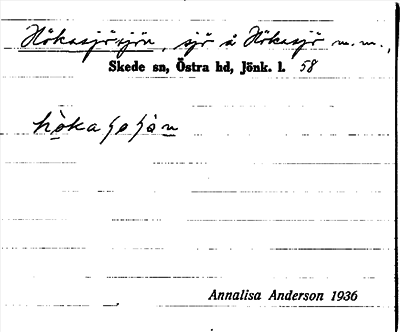 Hökasjösjön, sjö å Hökasjö m.m.,
Skede sn, Östra hd, Jönk. l. 58
Annalisa Anderson 1936